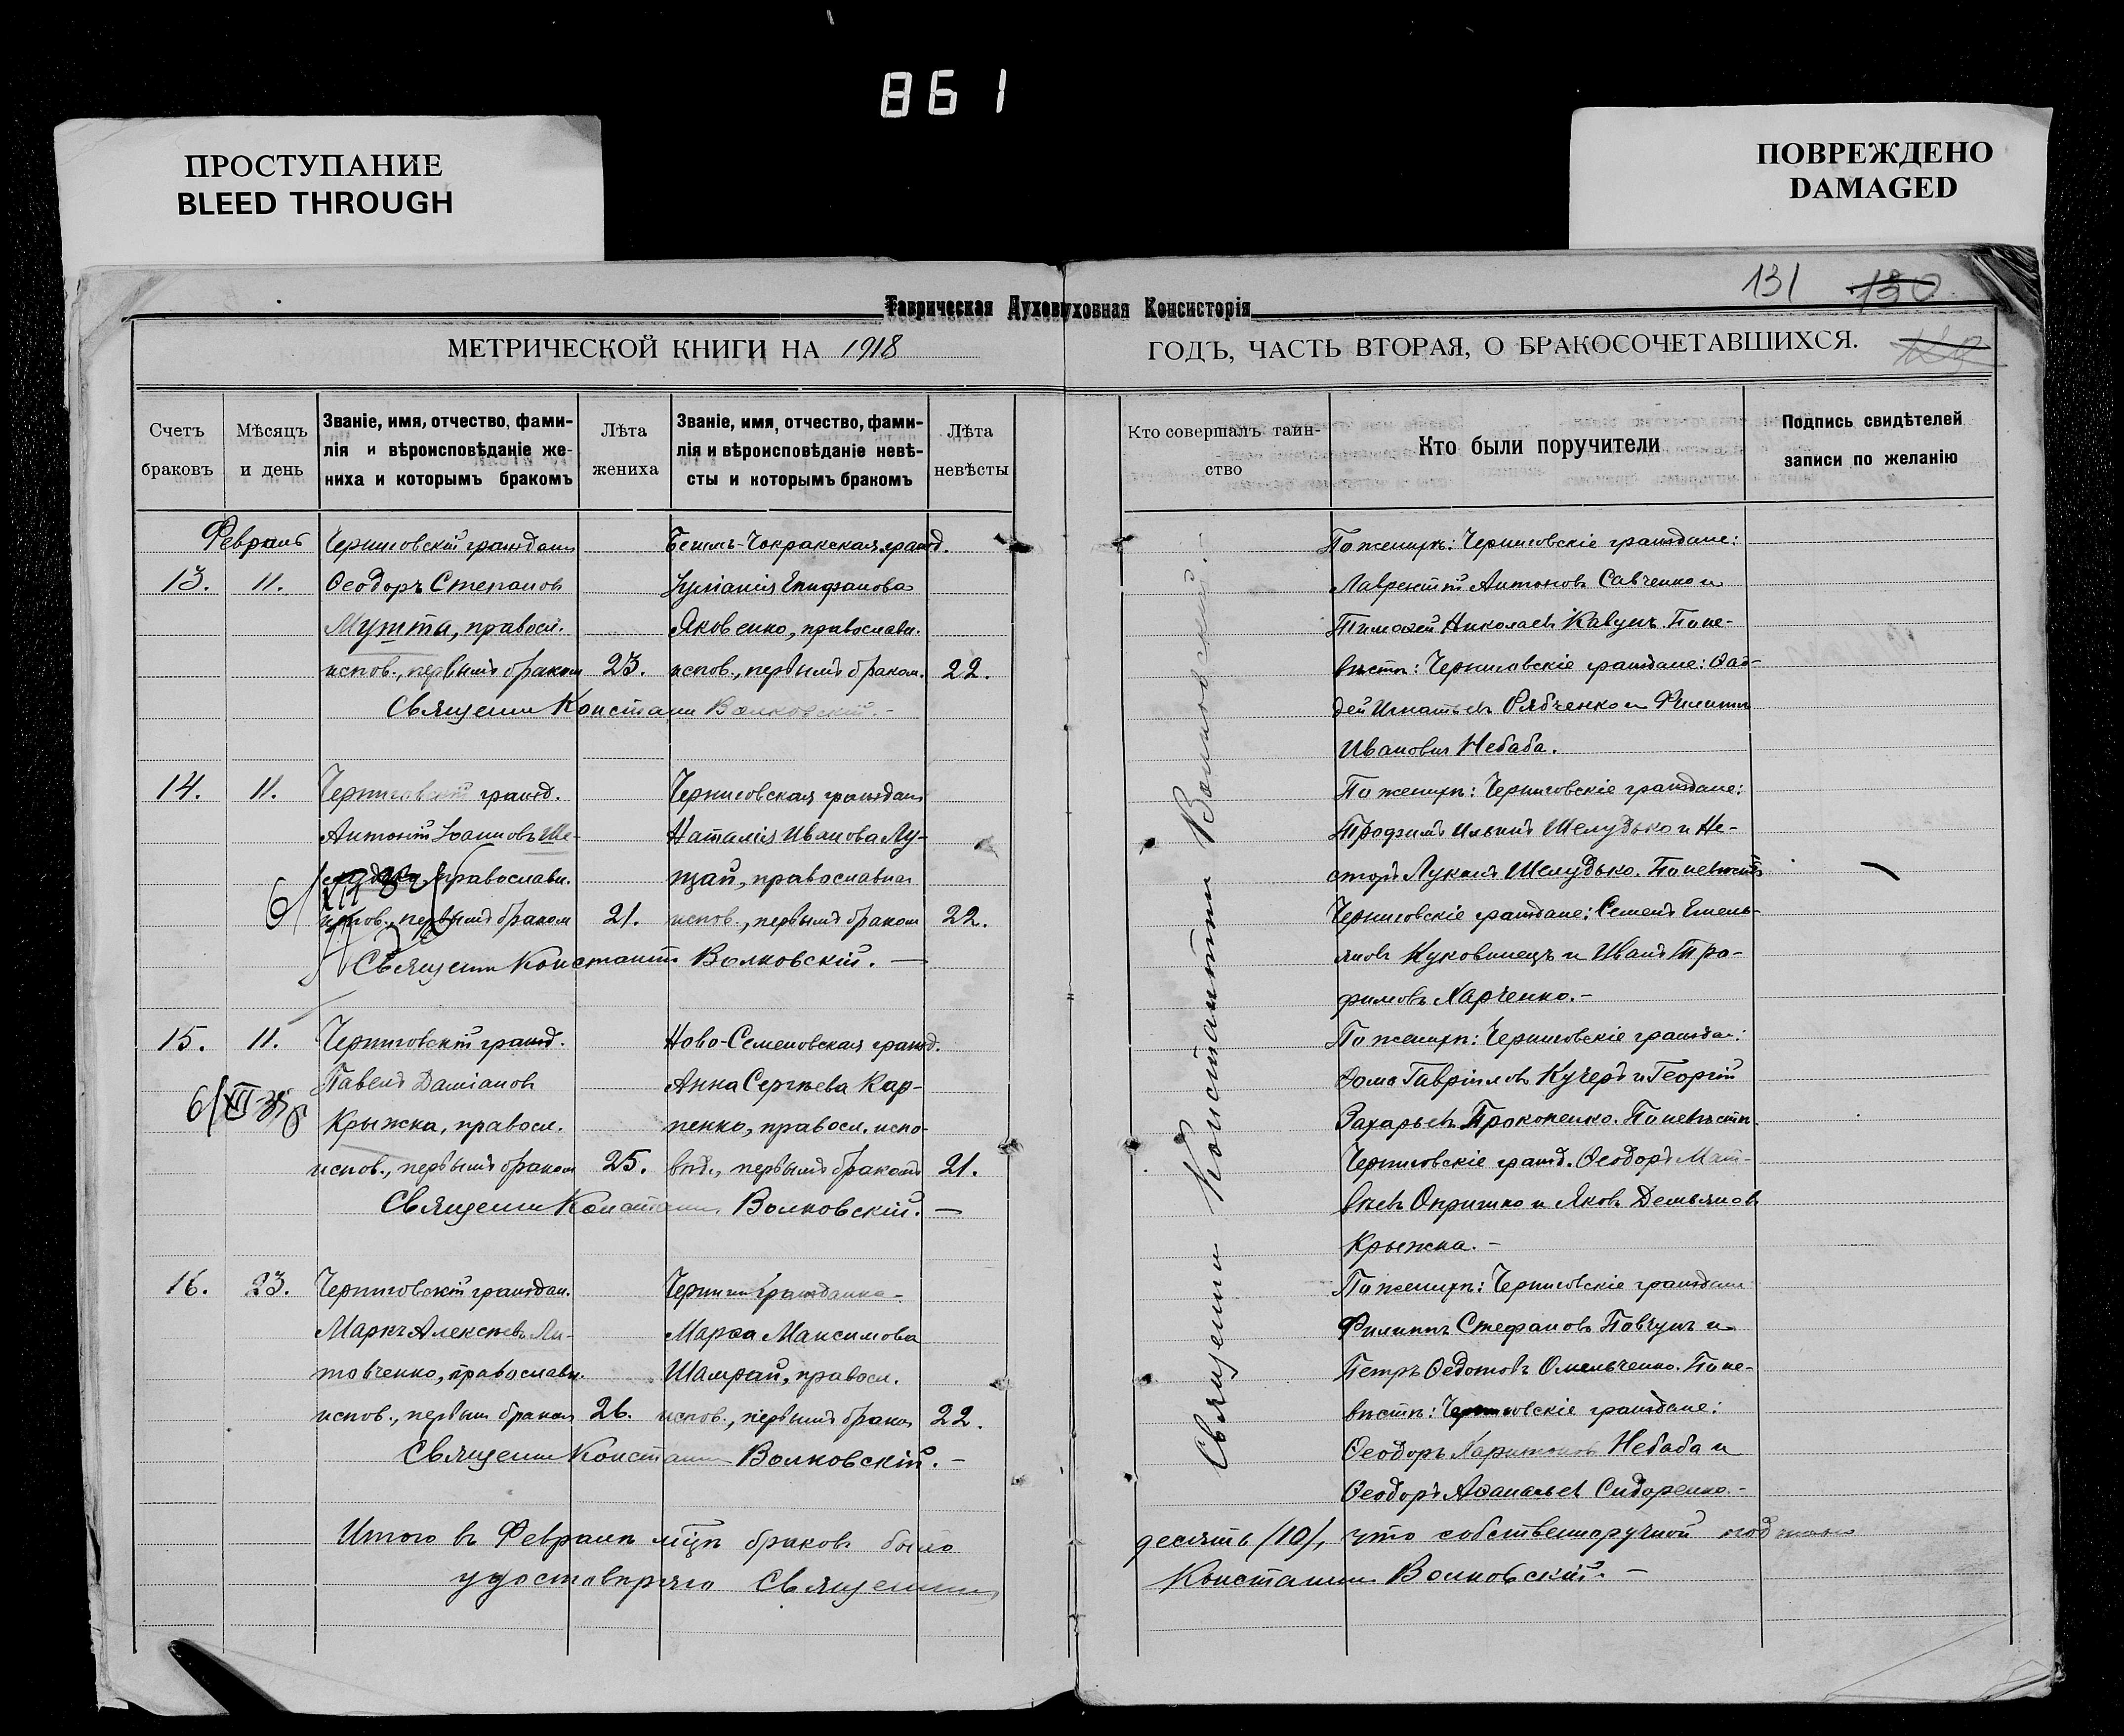 861
ПРОСТУПАНИЕ
BLEED THROUGH
ПОВРЕЖДЕНО
DAMAGED
131 130
Таврическая Духовуховная Консисторія
МЕТРИЧЕСКОЙ КНИГИ НА 1918
ГОДЪ, ЧАСТЬ ВТОРАЯ, О БРАКОСОЧЕТАВШИХСЯ.
Счетъ браковъ
Мѣсяцъ и день
Званіе, имя, отчество, фами-
лія и вѣроисповѣданіе же-
ниха и которымъ бракомъ
Лѣта жениха
Званіе, имя, отчество, фами-
лія и вѣроисповѣданіе невѣ-
сты и которымъ бракомъ
Лѣта невѣсты
Кто совершалъ таин-
ство
Кто были поручители
Подпись свидѣтелей
записи по желанію
Февраль
13. 11.
Черниговскій гражданъ
Ѳеодоръ Степановъ
Мушта, правосл.
испов., первымъ бракомъ
23.
Бешъ-Чокракская гражд.
Іуліанія Епифанова
Яковенко, православн.
испов., первымъ браком.
22.
Священн Констант Волковскій.-
По женихѣ: Черниговскіе граждане:
Лаврентій Антоновъ Савченко и
Тимоѳей Николаевъ Кавунъ. По не-
вѣстѣ: Черниговскіе граждане: Ѳад-
дей Игнатьевъ Рябченко и Филиппъ
Ивановичъ Небаба.
14. 11.
Черниговскій гражд.
Антоній Іоанновъ Ше-
лудько, православн.
испов., первымъ браком
21.
Черниговская граждан
Наталія Иванова Лу-
щай, православная
испов., первымъ браком
22.
Священн Константин Волковскій. —
По женихѣ: Черниговскіе граждане:
Трофимъ Ильинъ Шелудько и Не-
сторъ Лукинъ Шелудько. По невѣстѣ
Черниговскіе граждане: Семенъ Емель-
яновъ Куковинецъ и Иванъ Тро-
фимовъ Харченко.-
15. 11.
Черниговскій гражд.
Павелъ Даміановъ
Крыжка, правосл.
испов., первымъ браком
25.
6/XII 38
Ново-Семеновская гражд.
Анна Сергѣева Кар-
пенко, правосл. испо-
вѣд., первымъ бракомъ
21.
Священн Констант Волковскій. —
По женихѣ: Черниговскіе граждан:
Ѳома Гавріиловъ Кучеръ и Георгій
Захарьевъ Прокопенко. По невѣстѣ
Черниговскіе гражд. Ѳеодоръ Мат-
вѣевъ Опришко и Яковъ Демьяновъ
Крыжка.-
16. 23.
Черниговскій граждан.
Маркъ Алексѣевъ Ли-
товченко, православн.
испов., первым браком
26.
Чернигов гражданка-
Марѳа Максимова
Шамрай, правосл.
испов., первымъ браком
22.
Священн Констант Волковскій. -
По женихѣ: Черниговскіе граждан
Филиппъ Стефановъ Повгунъ и
Петръ Ѳедотовъ Омельченко. По не-
вѣстѣ: Черниговскіе граждане:
Ѳеодоръ Харитоновъ Небаба и
Ѳеодоръ Аѳанасьев Сидоренко-
Священн Константин Волковскій.-
Итого въ Февралѣ мцѣ браковъ было
десять (10), что собственноручной подписью
удостовѣряю Священник
Константин Волковскій. -